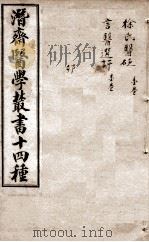 潛齋醫學叢書十四種
徐氏醫砭 壹卷
言醫選評 壹卷